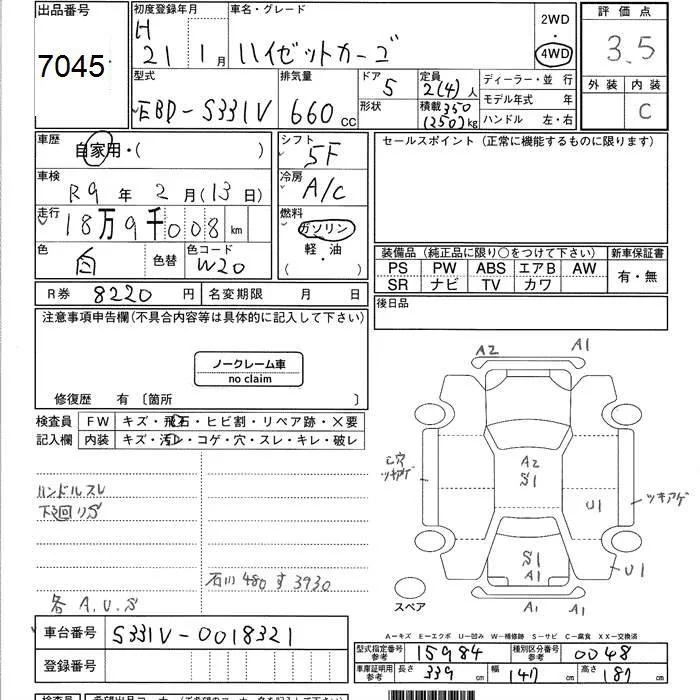 出品番号
7045
初度登録年月
H 21年 1月
車名・グレード
ハイゼットカーゴ
2WD
・
4WD
評価点
3.5
外装 内装
C
型式
EBD-S331V
排気量
660 cc
ドア
5
形状
定員
2(4)人
積載 350
(250)kg
ディーラー・並 行
モデル年式 年
ハンドル 左・右
車歴
自家用・( )
シフト
5F
セールスポイント (正常に機能するものに限ります)
車検
R9年 2月(13日)
冷房
A/C
走行
18万9千008 km
燃料
ガソリン
軽・油
( )
色
白
色替
色コード
W20
装備品 (純正品に限り○をつけて下さい)
新車保証書
PS PW ABS エアB AW
SR ナビ TV カワ
有・無
R券 8220 円
名変期限 月 日
後日品
注意事項申告欄(不具合内容等は具体的に記入して下さい)
ノークレーム車
no claim
修復歴 有〔箇所 〕
検査員
記入欄
FW キズ・飛石・ヒビ割・リペア跡・×要
内装 キズ・汚レ・コゲ・穴・スレ・キレ・破レ
ハンドルスレ
下廻リS
石川 480 す 3930
各 A.U.S
A2 A1
A2
S1
穴
ツキアゲ
U1
ツキアゲ
S1
A1
U1
A1 A1
スペア
車台番号 S331V-0018321
登録番号
A-キズ E-エクボ U-凹み W-補修跡 S-サビ C-腐食 XX-交換済
型式指定番号
参考
15984
種別区分番号
参考
0048
車庫証明用
参考
長さ 339 cm 幅 147 cm 高さ 187 cm